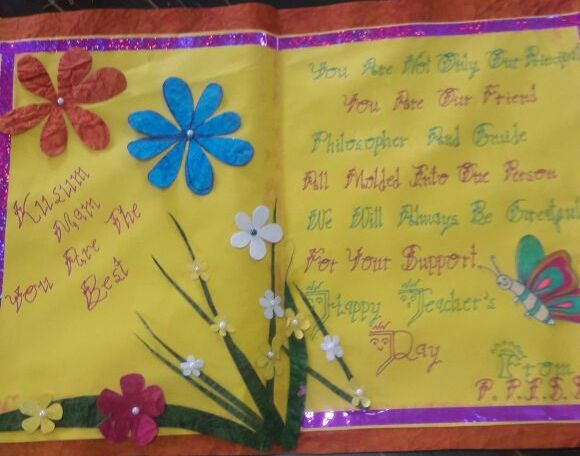 Kusum
Mam
You Are The
Best
You Are Not Only Our Principal
You Are Our Friend
Philosopher And Guide
All Molded Into One Person
We Will Always Be Grateful
For Your Support
Happy Teacher's
Day
From